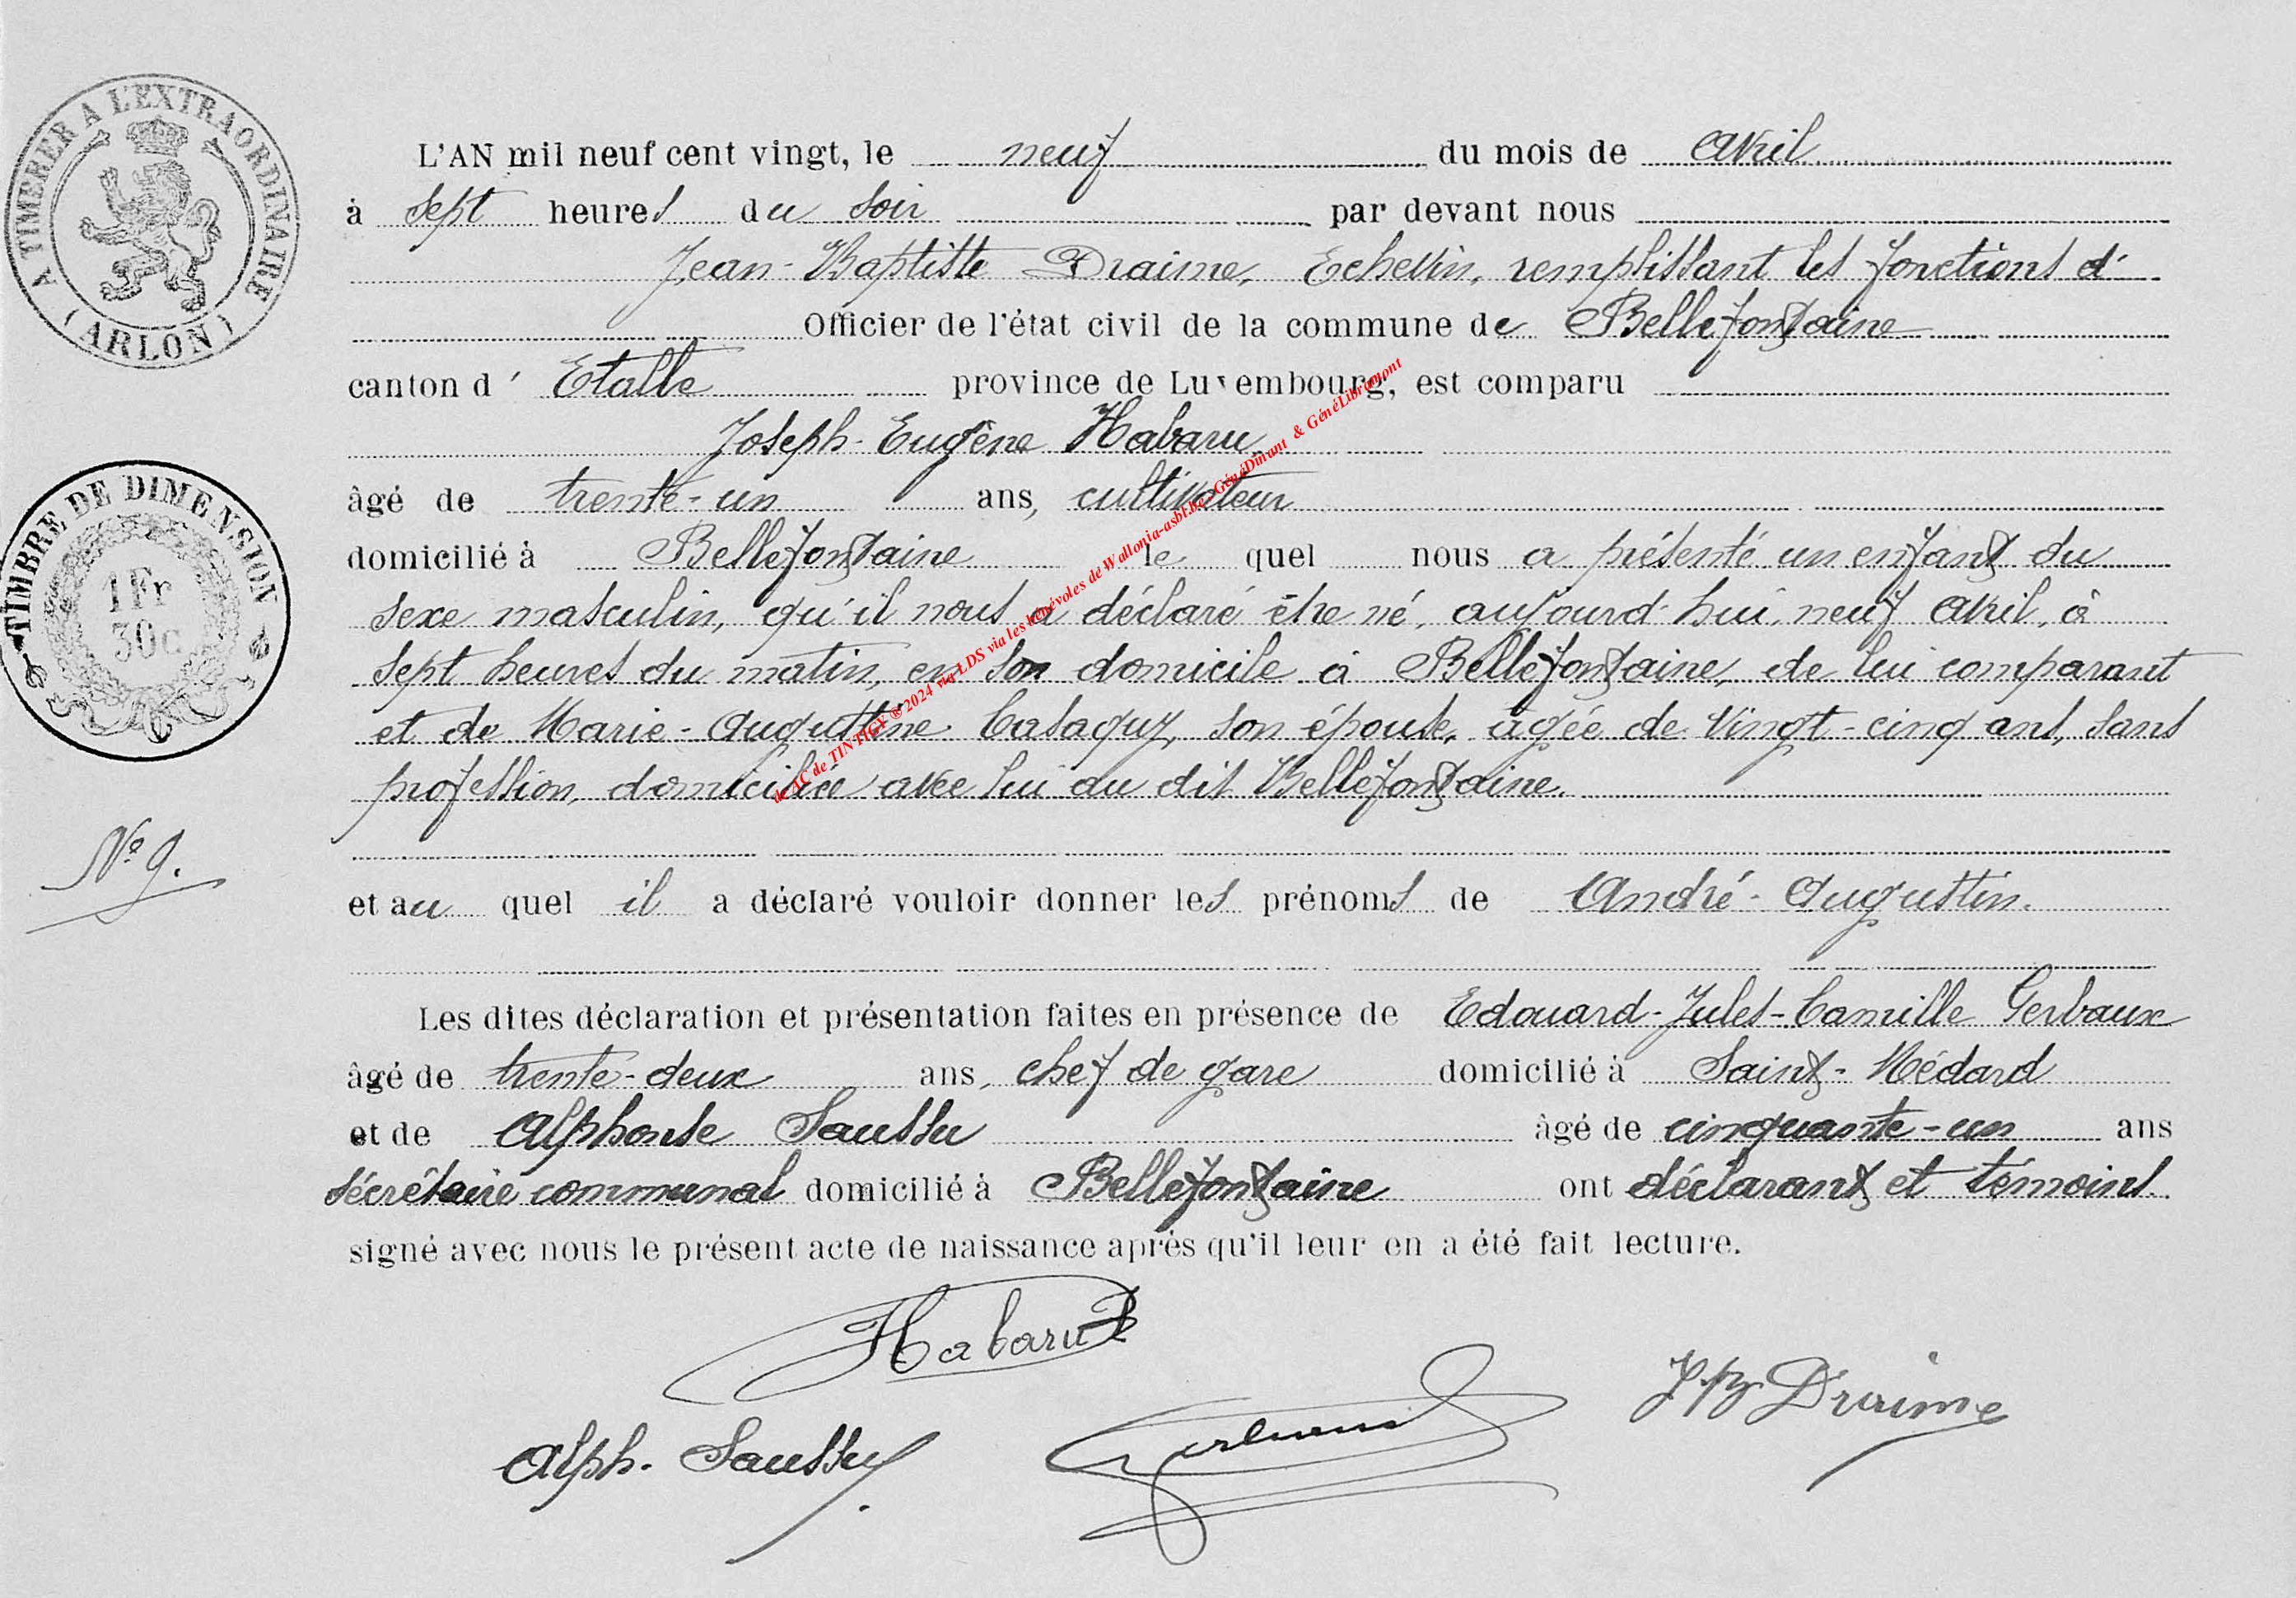 A TIMBRER A L'EXTRAORDINAIRE
( ARLON )
L'AN mil neuf cent vingt, le neuf du mois de Avril
à sept heures du soir par devant nous
Jean-Baptiste Draime, Echevin, remplissant les fonctions d'
Officier de l'état civil de la commune de Bellefontaine
canton d' Etalle province de Luxembourg, est comparu
Joseph-Eugène Habaru
âgé de trente-un ans, cultivateur
TIMBRE DE DIMENSION
1 Fr
30c
domicilié à Bellefontaine le quel nous a présenté un enfant du
sexe masculin, qu'il nous a déclaré être né, aujourd'hui, neuf Avril, à
sept heures du matin, en son domicile à Bellefontaine, de lui comparant
et de Marie-Augustine Casaquy, son épouse, âgée de vingt-cinq ans, sans
profession, domiciliée avec lui au dit Bellefontaine.
N° 9.
et au quel il a déclaré vouloir donner les prénoms de André-Augustin.
Les dites déclaration et présentation faites en présence de Edouard-Jules-Camille Gerbaux
âgé de trente-deux ans, chef de gare domicilié à Saint-Médard
et de Alphonse Saussu âgé de cinquante-un ans
sécrétaire communal domicilié à Bellefontaine ont déclarant et témoins.
signé avec nous le présent acte de naissance après qu'il leur en a été fait lecture.
Habaru
JB Draime
Alph. Saussu
de AC de TINTIGY ® 2024 via LDS via les bénévoles de Wallonia-asbl.be, GénéDinant & GénéLibramont